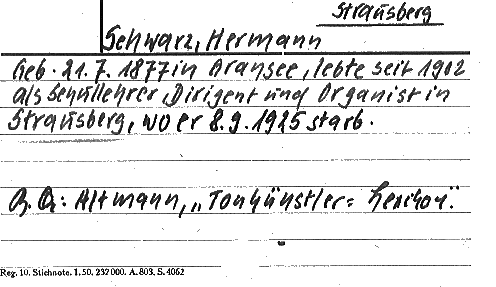 Strausberg
Schwarz, Hermann
Geb. 21.7.1877 in Gransee, lebte seit 1902
als Schullehrer, Dirigent und Organist in
Strausberg, wo er 8.9.1925 starb.
Altmann, „Tonkünstler= Lexikon".
Reg. 10. Stichnote. 1,50. 232000. A. 803. S. 4062